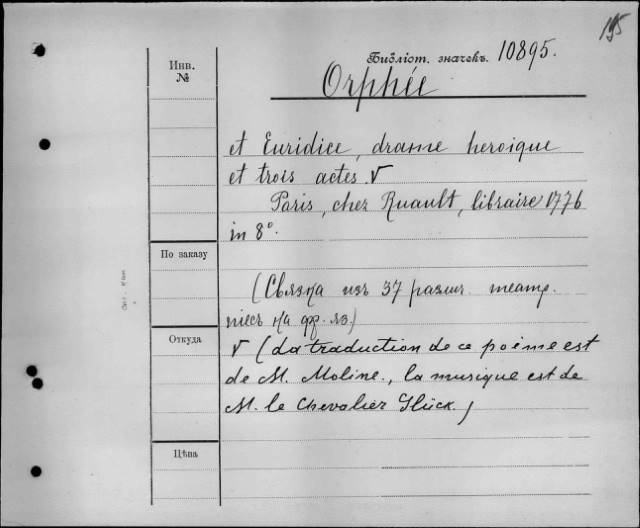 195
Библіот. значекъ. 10895.
Инв.
№
Orphée
et Euridice, drame heroique
et trois actes. V
Paris, cher Ruault, libraire 1776
in 8°.
По заказу
(Связка изъ 37 разн. театр.
піесъ на фр. яз.)
Откуда
V (La traduction de ce poéme est
de M. Moline., la musique est de
M. le Chevalier Glück.)
Цѣна